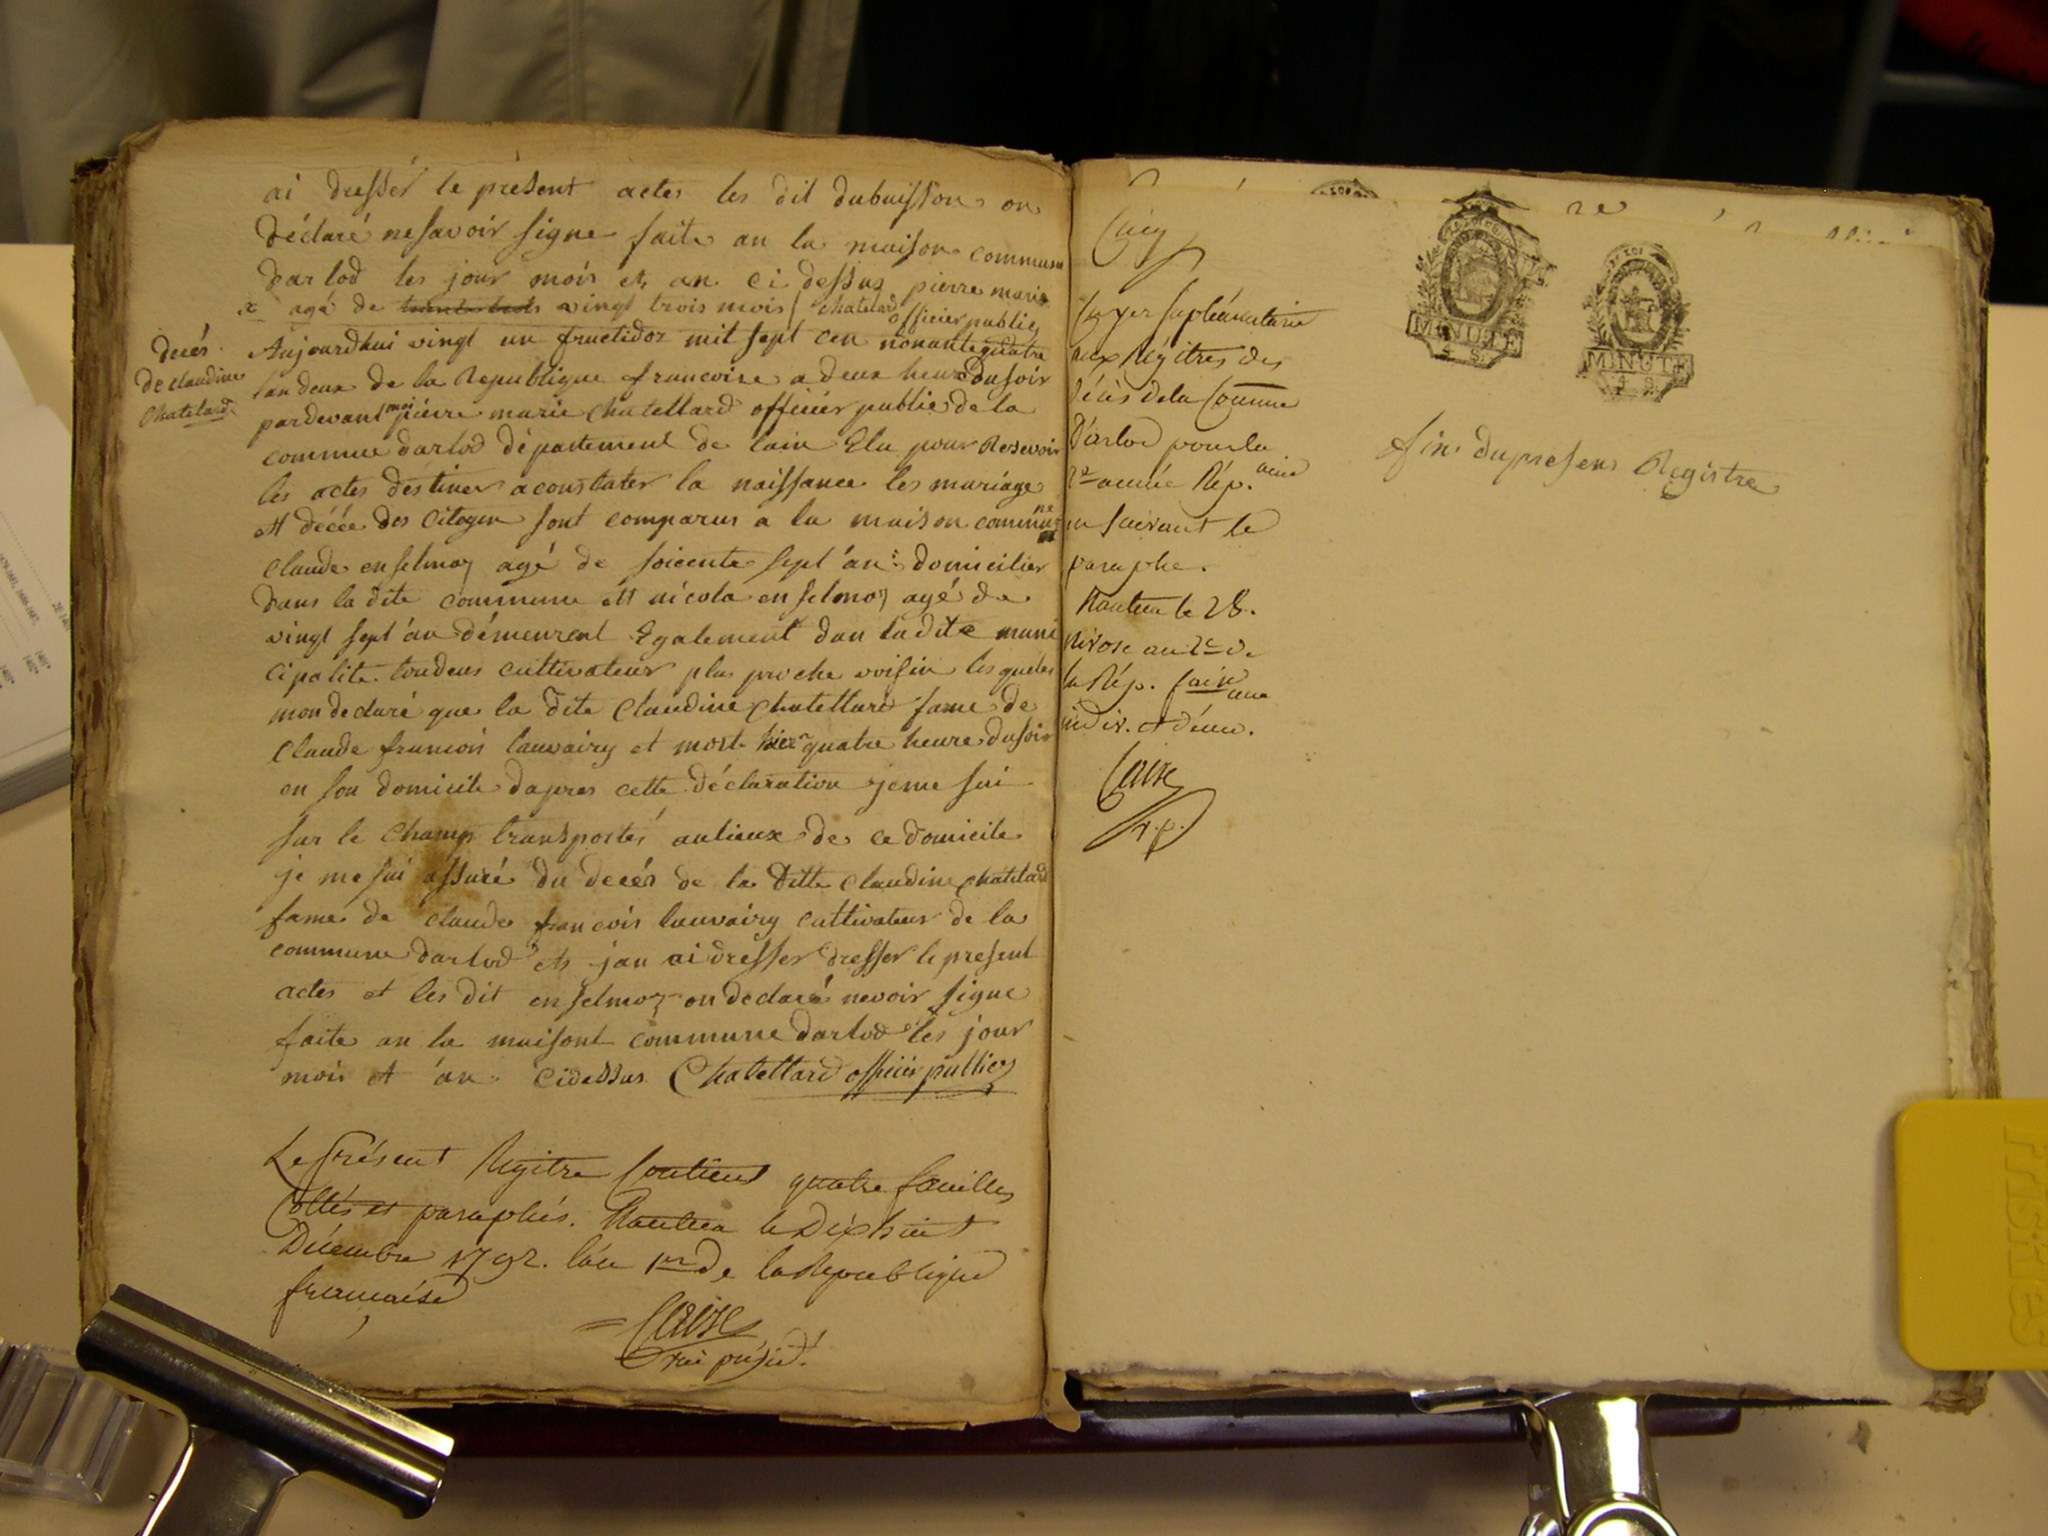 ai dresser le présent actes les dit dubuisson on
déclaré nesavoir signe faite an la maison commune
darlod les jour mois et an ci dessus pierre marie
x agé de vingt trois mois chatelard officier public
decés
de claudine
chatelard
Aujourdhui vingt un fructidor mit sept cen nonantequatre
lan deux de la Republique francoise a deux heure dusoir
pardevant moi pierre marie chatellard officier public de la
commune darlod département de lain Elu pour Resevoir
les actes destiner aconstater la naissance les mariage
et décée des citoyen sont comparus a la maison commune
claude enselmoz agé de soicente sept an domicilier
dans la dite commune ett nicola enselmoz agé de
vingt sept an démeurent Egalement dan ladite muni
cipalite toudeus cultivateur plus proche voisin les queles
mon declaré que la dite claudine chatellard fame de
claude francois lauvairy et mort hier quatre heure dusoir
en son domicile dapres cette déclaration jeme sui
sur le champ transportés aulieux de ce domicile
je me sui assuré du decés de la ditte claudine chatelard
fame de claude francois lauvairy cultivateur de la
commune darlod et jan ai dresser dresser le present
actes et les dit enselmoz on declaré nevoir signe
faite an la maisont commune darlod les jour
mois et an cidessus Chatellard officier publics
Le Présent Regitre Contient quatre feuilles
Cottés et paraphés. Nantua le Dixhuit
Décembre 1792. l'an 1er de la Republique
francaise
Caire
présid.
MINUTE
4 S.
MINUTE
4 S.
Cinq
supléméntaire
aux Regitres des
Décès dela Comune
D'arlod pour la
2e année Rép. aine
en suivant le
paraphe.
Nantua le 28.
Nivose an 2e de
la Rép. faine une
indiv. et démo.
Caire
v.p.
fin dupresens Registre